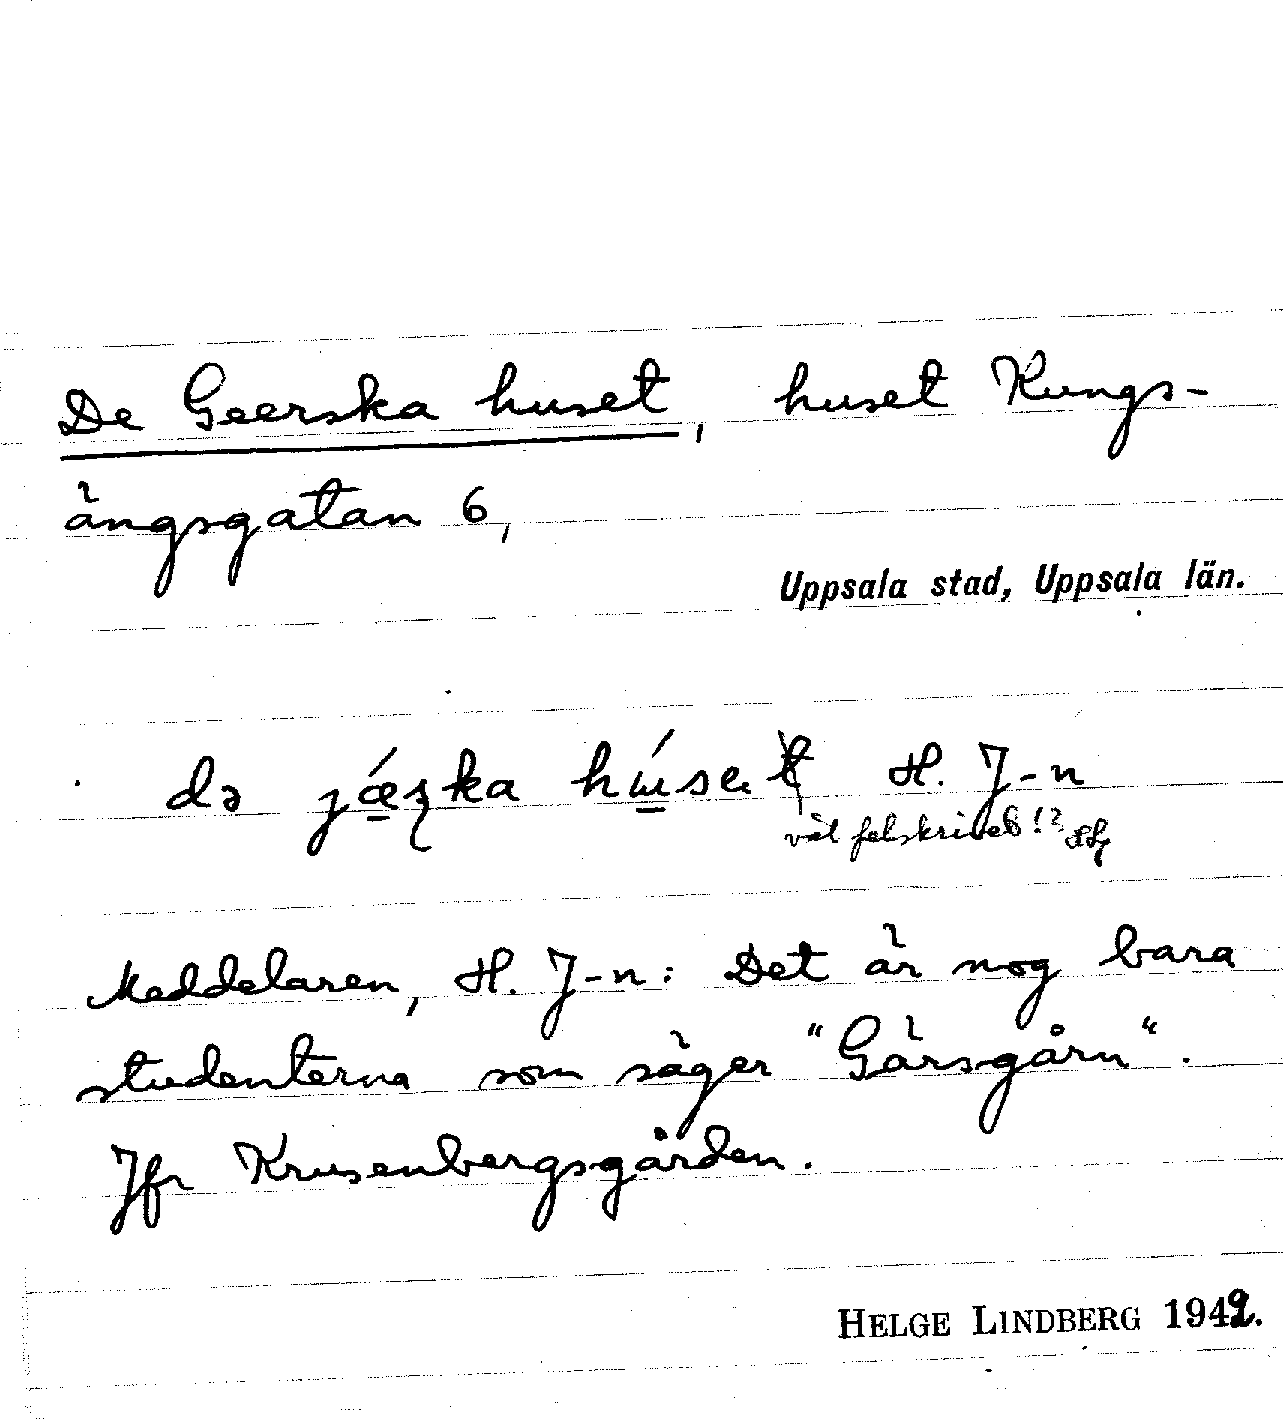 De Geerska huset, huset Kungs-
ängsgatan 6,
Uppsala stad, Uppsala län.
də jǽʂka húset H. J-n
väl felskrivet!?
Meddelaren, H. J-n: Det är nog bara
studenterna som säger "Gärsgårn".
Jfr Krusenbergsgården.
HELGE LINDBERG 1949.